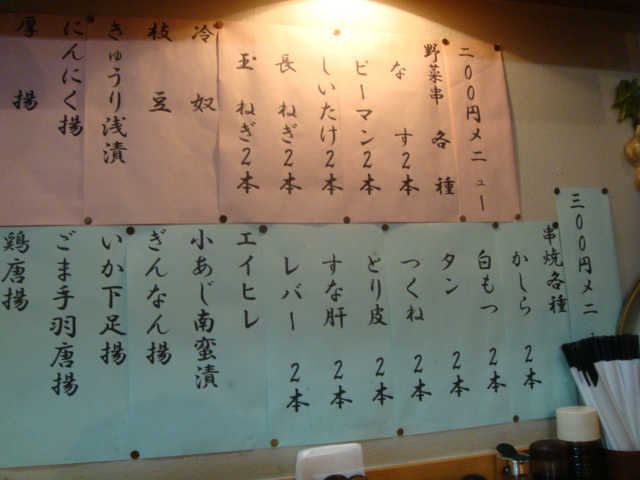 二〇〇円メニュー
野菜串 各種
なす2本
ピーマン2本
しいたけ2本
長ねぎ2本
玉ねぎ2本
冷奴
枝豆
きゅうり浅漬
にんにく揚
厚揚
三〇〇円メニュ
串焼各種
かしら 2本
白もつ 2本
タン 2本
つくね 2本
とり皮 2本
すな肝 2本
レバー 2本
エイヒレ
小あじ南蛮漬
ぎんなん揚
いか下足揚
ごま手羽唐揚
鶏唐揚